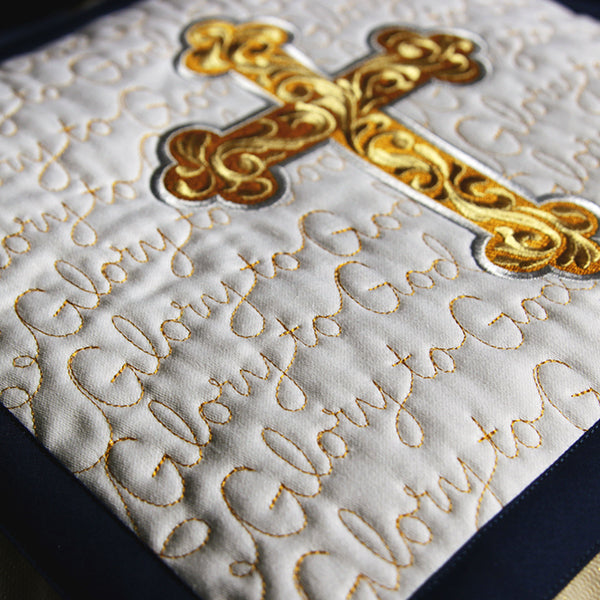 Glory to God
Glory to God
Glory to God
Glory to God
Glory to God
Glory to God
Glory to God
Glory to God
Glory